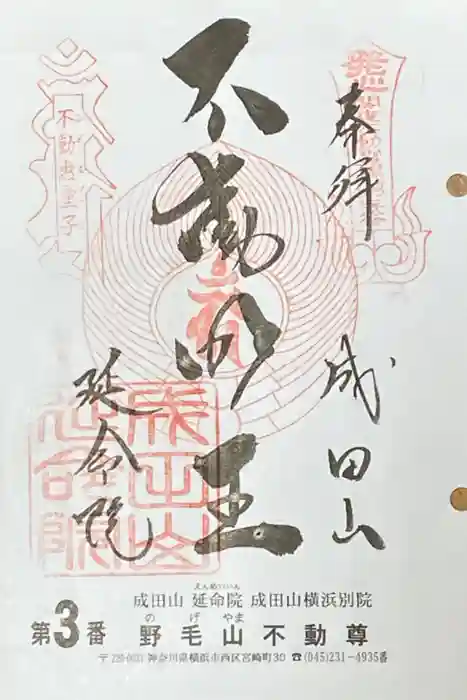 奉拝
成田山
不動明王
延命院
不動尊童子
成田山延命院
えんめいいん
成田山 延命院 成田山横浜別院
第3番
のげやま
野毛山不動尊
〒220-0031 神奈川県横浜市西区宮崎町30 ☎(045)231-4935番